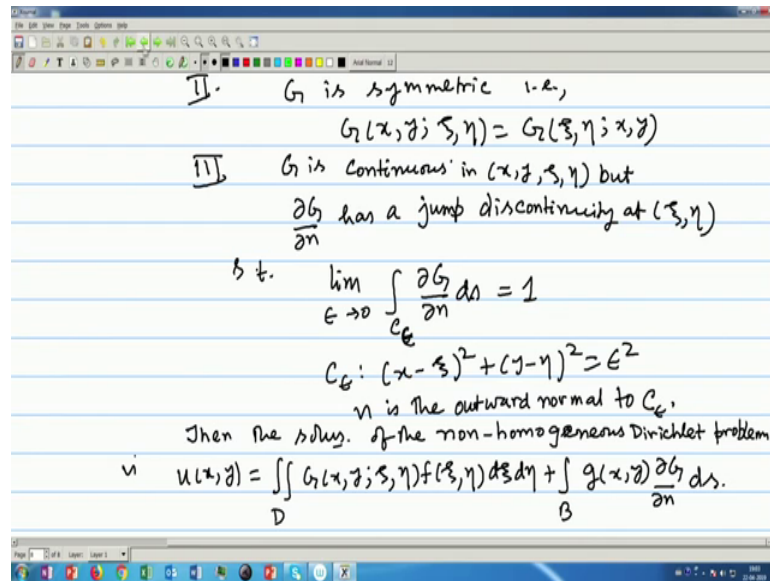 File Edit View Page Tools Options Help
Arial Normal 12
II. G is symmetric i.e.,
G(x,y; ξ,η) = G(ξ,η; x,y)
III, G is continuous in (x,y,ξ,η) but
∂G/∂n has a jump discontinuity at (ξ,η)
s.t. lim_{ε→0} ∫_{C_ε} ∂G/∂n ds = 1
C_ε: (x-ξ)² + (y-η)² = ε²
n is the outward normal to C_ε.
Then the solns. of the non-homogeneous Dirichlet problem
is u(x,y) = ∬_D G(x,y;ξ,η) f(ξ,η) dξ dη + ∫_B g(x,y) ∂G/∂n ds.
Page 8 of 8 Layer: Layer 1